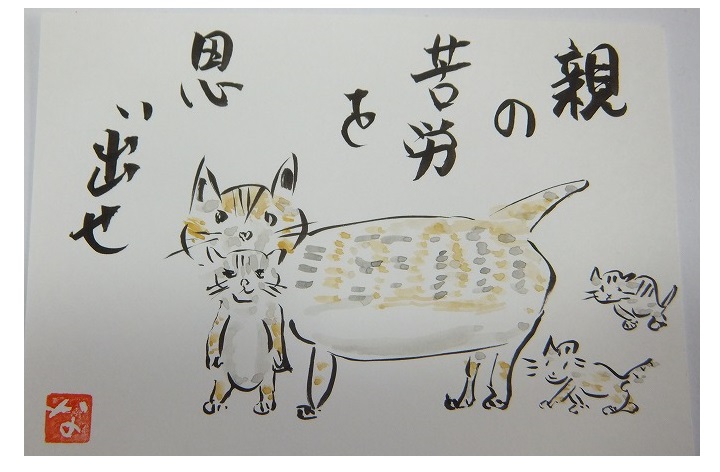 親の
苦労を
思
い出せ
な